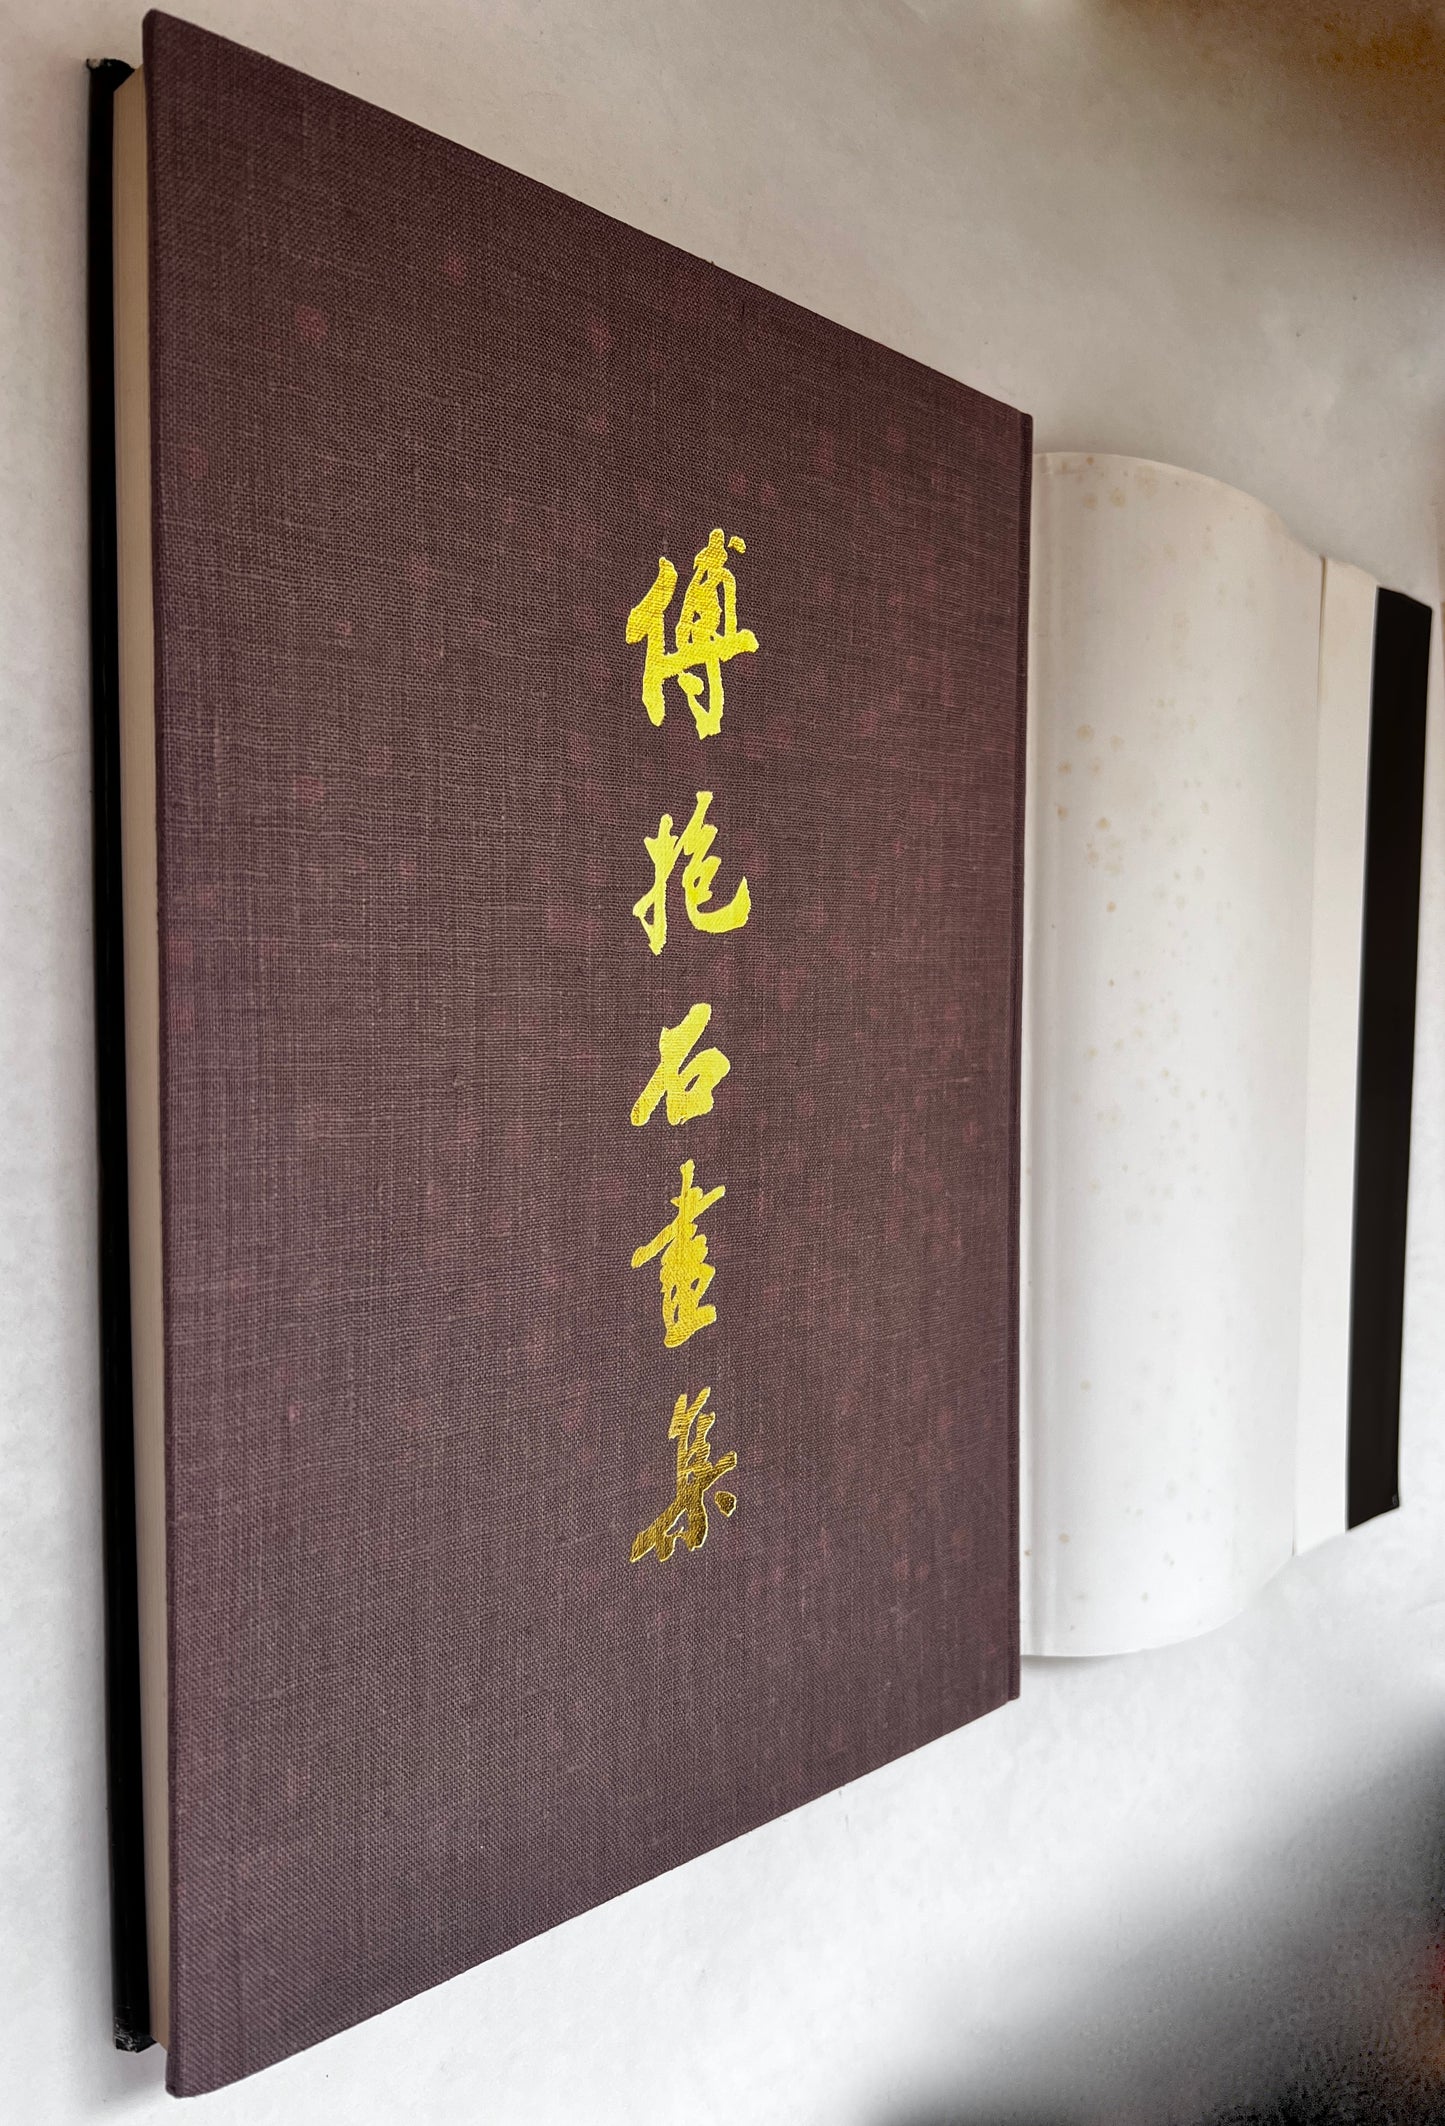 傅抱石画集